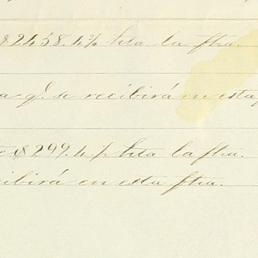 $2458.4½ hta la fha.
a q.e se recibirá en esta
$299.4½ hta la fha.
cibirá en esta fha.